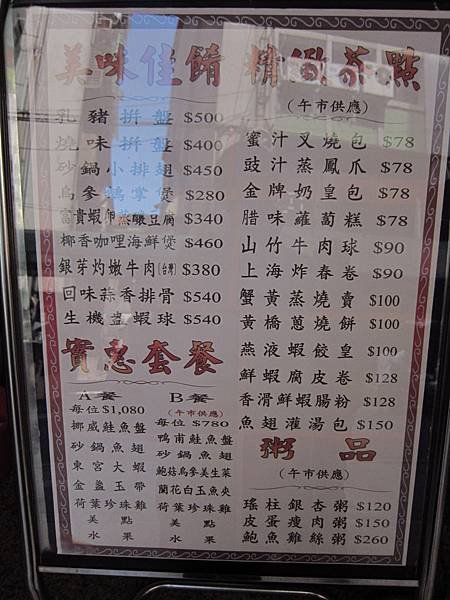 美味佳餚
乳豬拼盤 $500
燒味拼盤 $400
砂鍋小排翅 $450
烏參鵝掌煲 $280
富貴蝦卵蒸釀豆腐 $340
椰香咖哩海鮮煲 $460
銀芽灼嫩牛肉(台灣) $380
回味蒜香排骨 $540
生機盞蝦球 $540
實惠套餐
A餐
每位$1,080
挪威鮭魚盤
砂鍋魚翅
東宮大蝦
金盞玉帶
荷葉珍珠雞
美點
水果
B餐
(午市供應)
每位 $780
鴨甫鮭魚盤
砂鍋魚翅
鮑菇烏參美生菜
蘭花白玉魚夾
荷葉珍珠雞
美點
水果
精緻茶點
(午市供應)
蜜汁叉燒包 $78
豉汁蒸鳳爪 $78
金牌奶皇包 $78
腊味蘿蔔糕 $78
山竹牛肉球 $90
上海炸春卷 $90
蟹黃蒸燒賣 $100
黃橋蔥燒餅 $100
燕液蝦餃皇 $100
鮮蝦腐皮卷 $128
香滑鮮蝦腸粉 $128
魚翅灌湯包 $150
粥品
(午市供應)
瑤柱銀杏粥 $120
皮蛋瘦肉粥 $150
鮑魚雞絲粥 $260